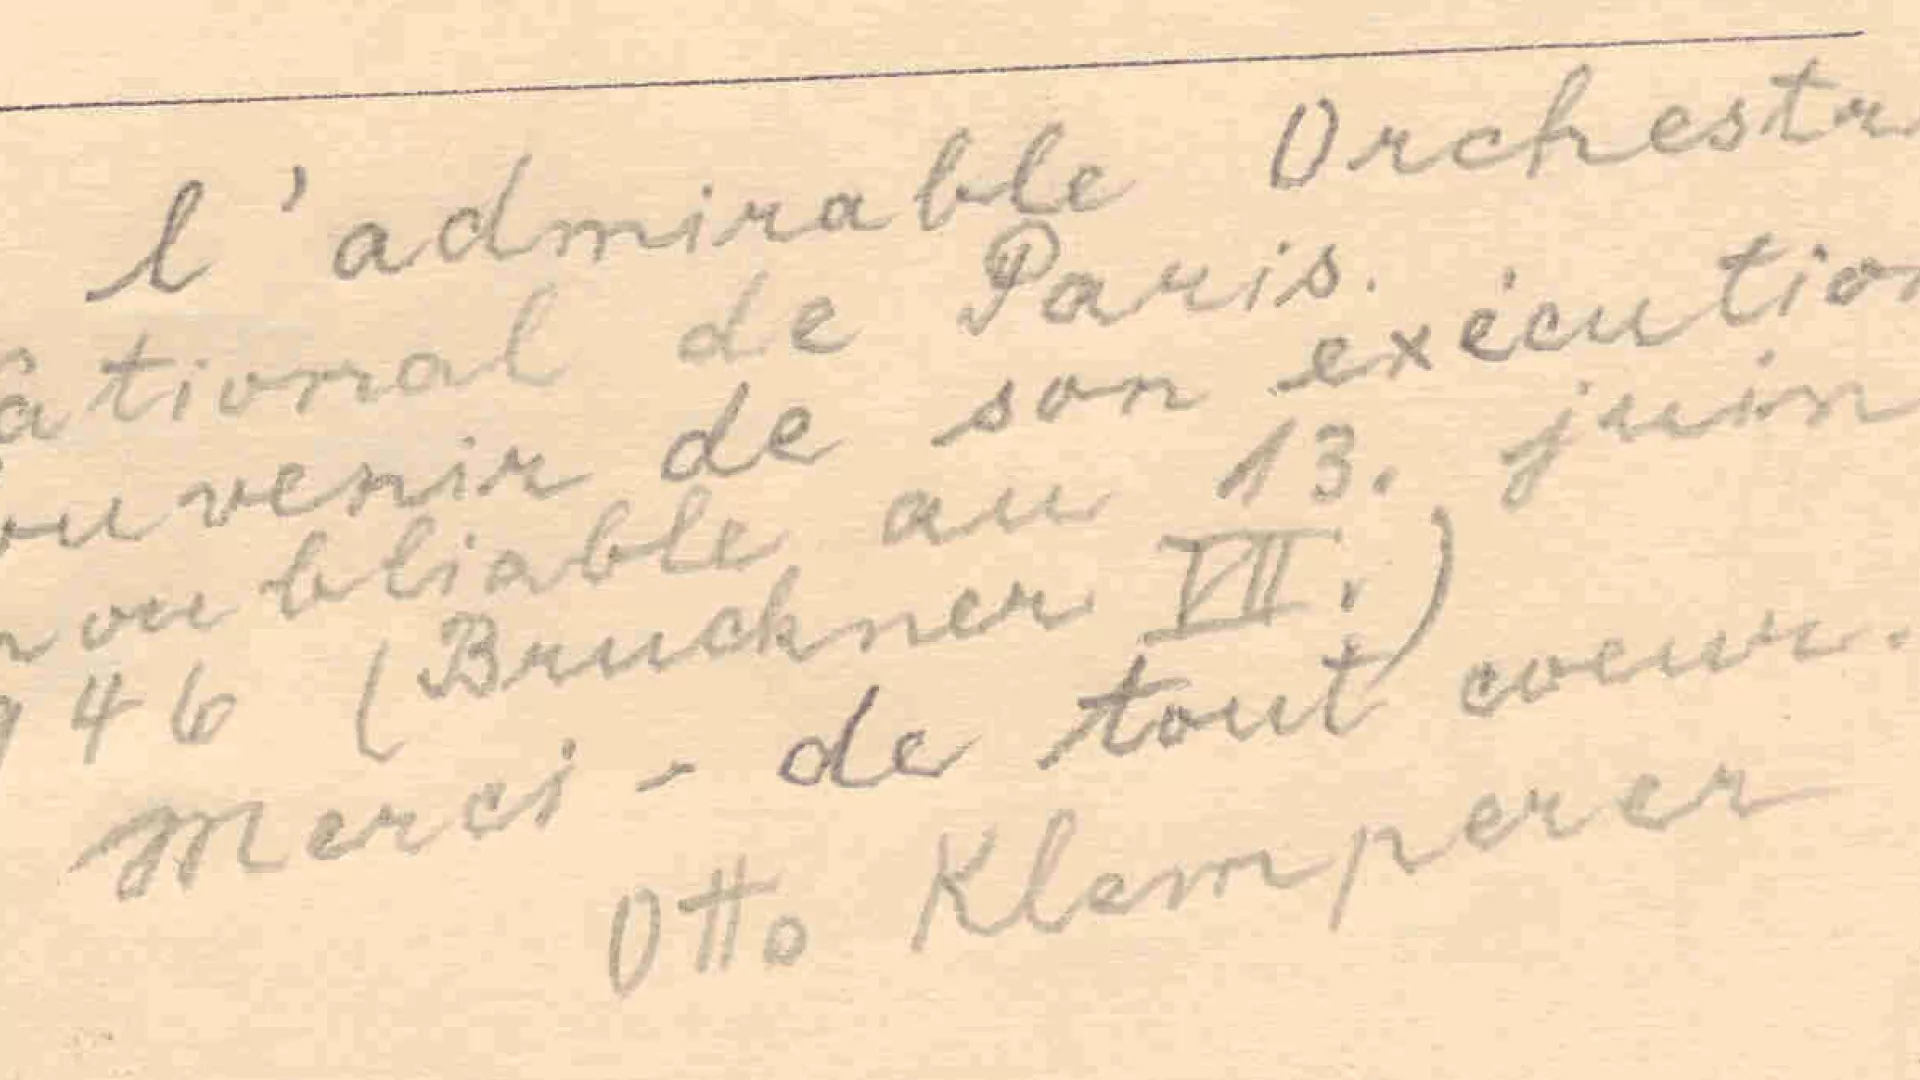 l'admirable Orchestr
ational de Paris.
ouvenir de son exécution
noubliable au 13. juin
946 (Bruckner VII.)
Merci - de tout coeur.
Otto Klemperer